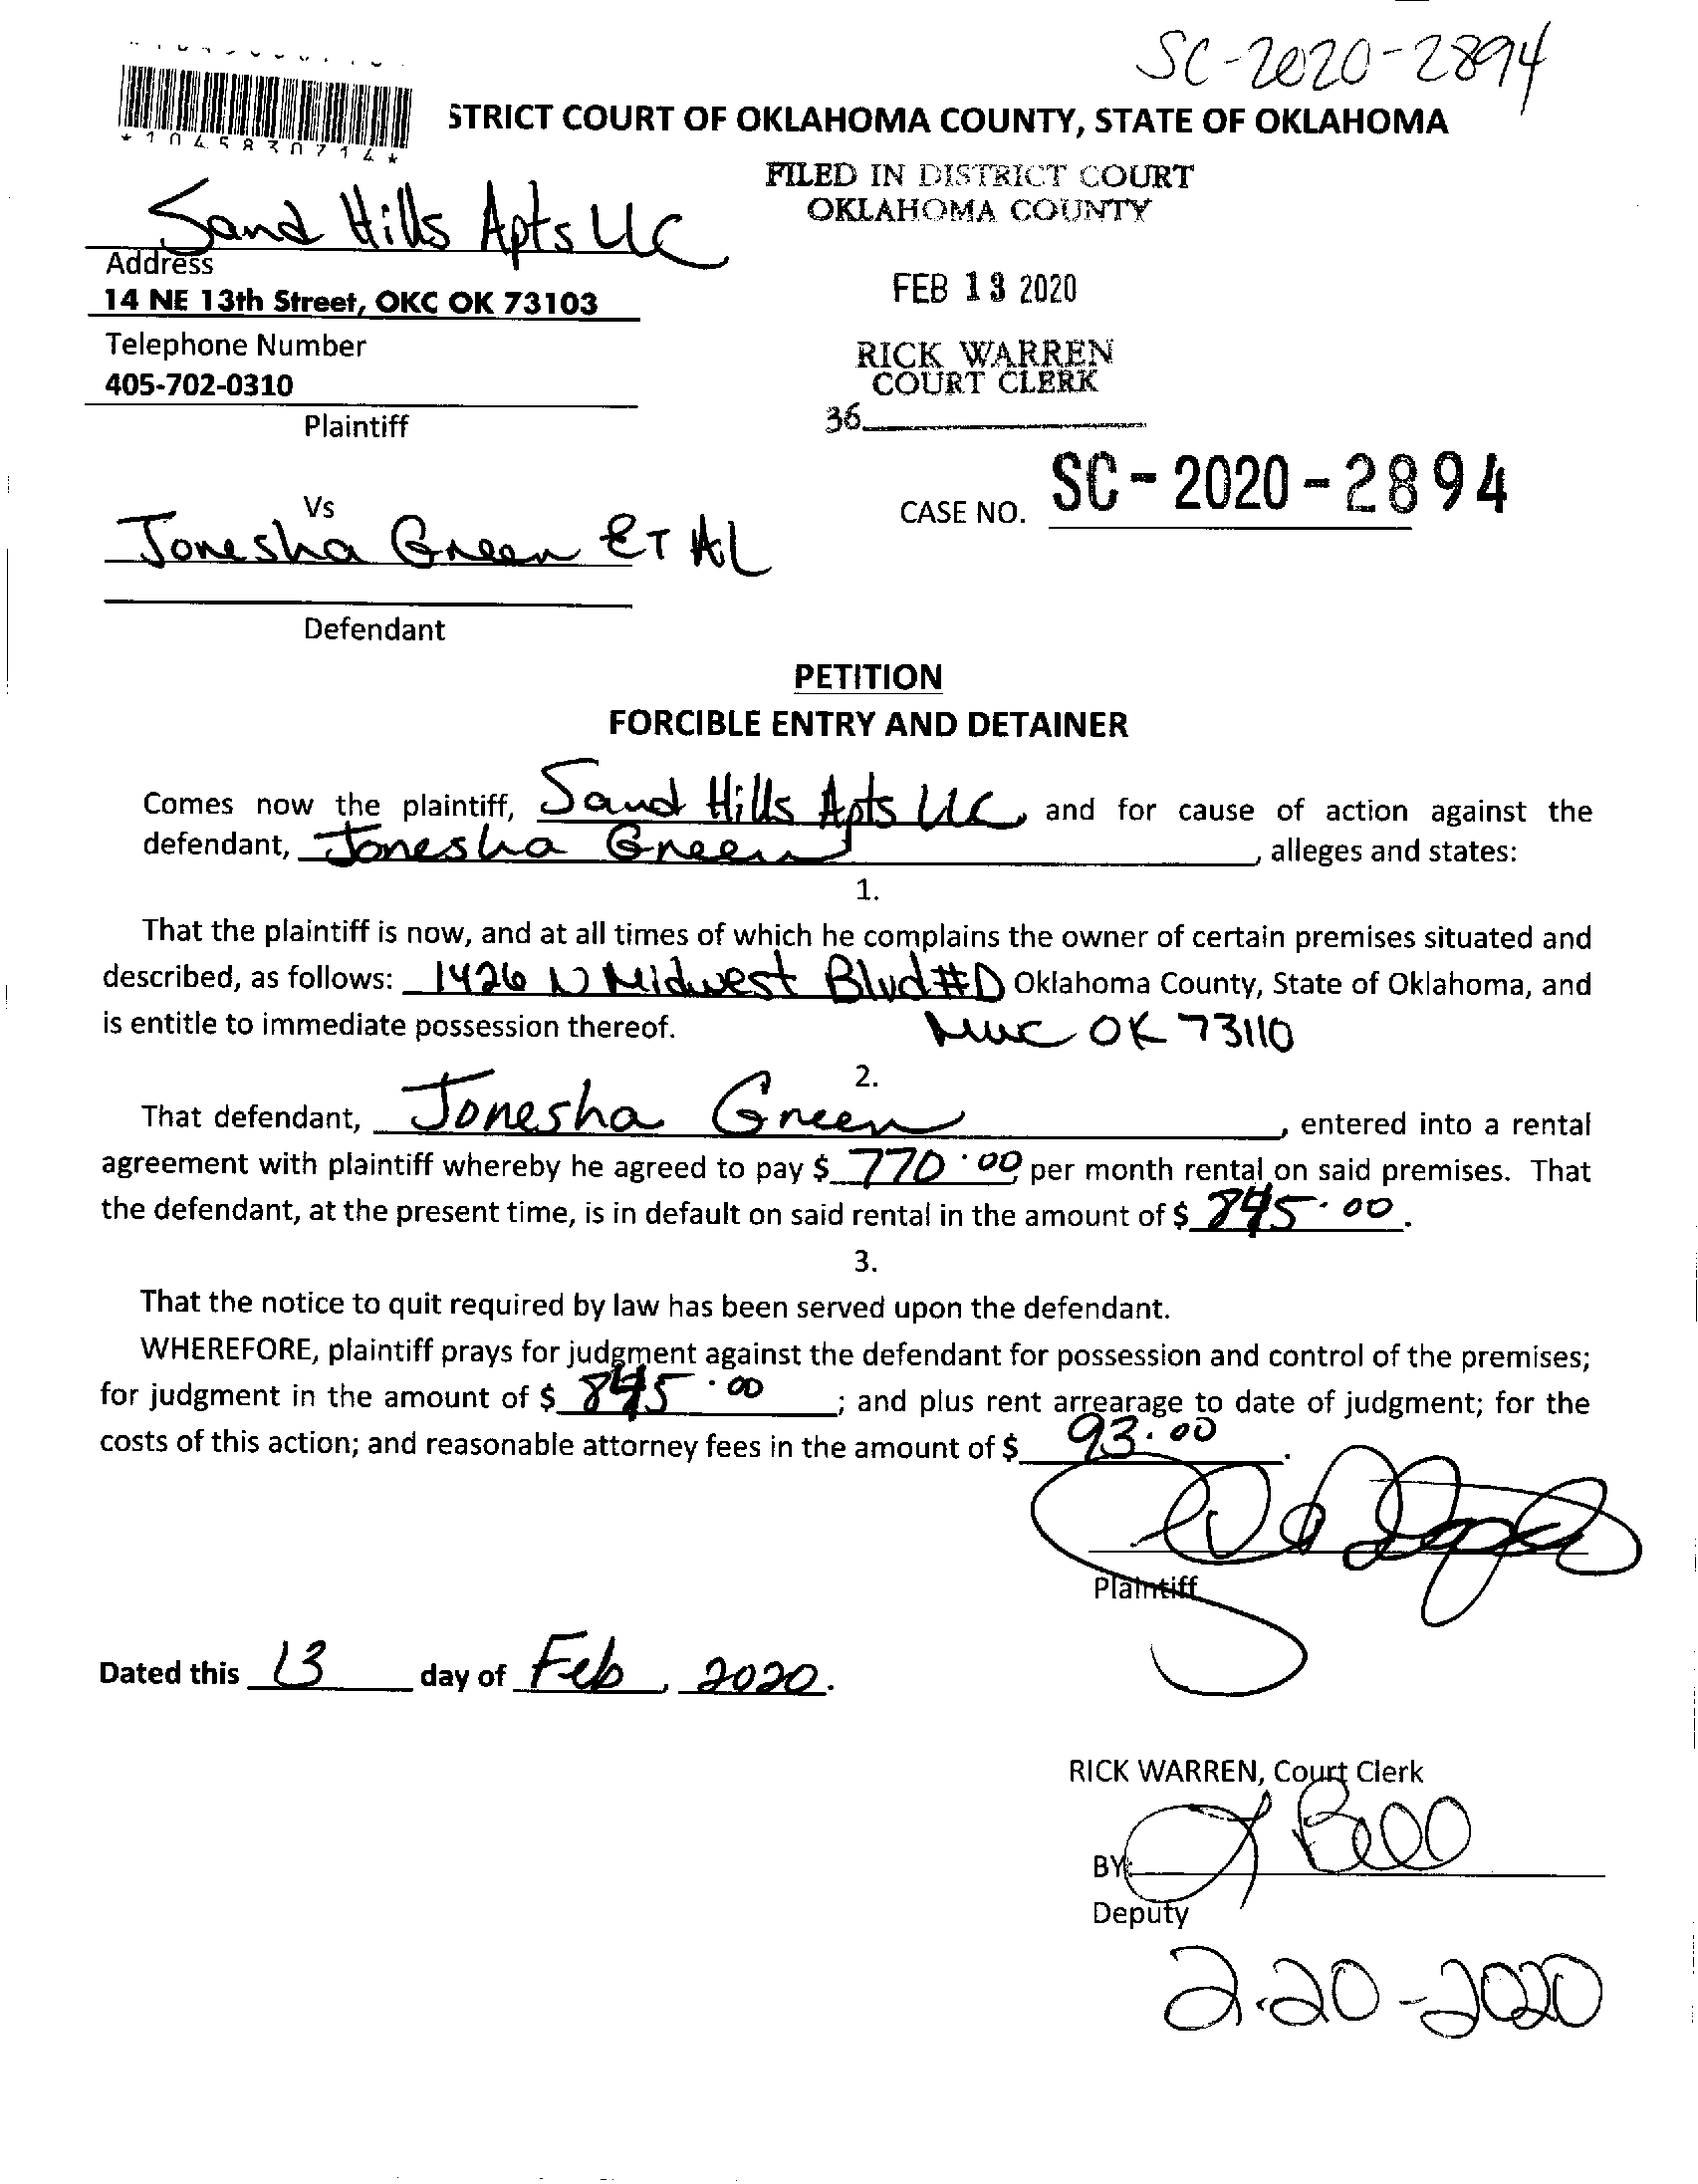 SC-2020-2894
*1045830714*
STRICT COURT OF OKLAHOMA COUNTY, STATE OF OKLAHOMA
FILED IN DISTRICT COURT
OKLAHOMA COUNTY
Sand Hills Apts LLC
Address
14 NE 13th Street, OKC OK 73103
FEB 13 2020
Telephone Number
405-702-0310
RICK WARREN
COURT CLERK
Plaintiff
36
CASE NO. SC-2020-2894
Vs
Jonesha Green ET AL
Defendant
PETITION
FORCIBLE ENTRY AND DETAINER
Comes now the plaintiff, Sand Hills Apts LLC, and for cause of action against the
defendant, Jonesha Green, alleges and states:
1.
That the plaintiff is now, and at all times of which he complains the owner of certain premises situated and
described, as follows: 1426 N Midwest Blvd #D Oklahoma County, State of Oklahoma, and
is entitle to immediate possession thereof. MWC OK 73110
2.
That defendant, Jonesha Green, entered into a rental
agreement with plaintiff whereby he agreed to pay $ 770.00, per month rental on said premises. That
the defendant, at the present time, is in default on said rental in the amount of $ 845.00.
3.
That the notice to quit required by law has been served upon the defendant.
WHEREFORE, plaintiff prays for judgment against the defendant for possession and control of the premises;
for judgment in the amount of $ 845.00; and plus rent arrearage to date of judgment; for the
costs of this action; and reasonable attorney fees in the amount of $ 93.00.
Plaintiff
Dated this 13 day of Feb, 2020.
RICK WARREN, Court Clerk
BY:
Deputy
2-20-2020